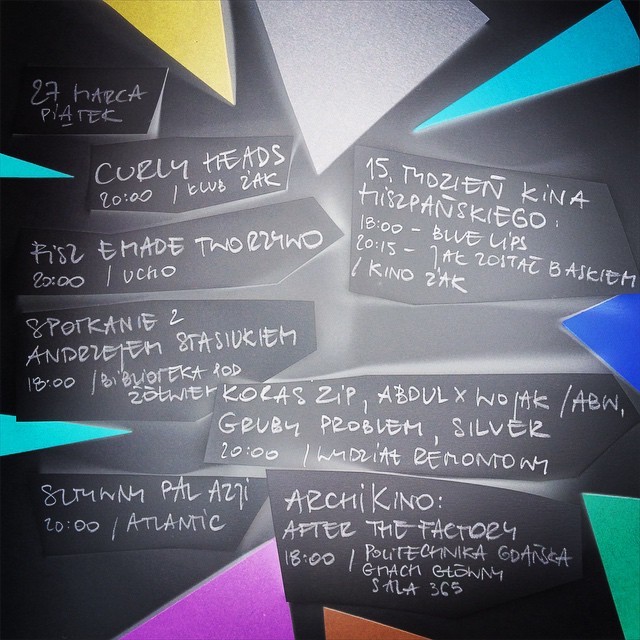 27 MARCA
PIĄTEK
CURLY HEADS
20:00 / KLUB ŻAK
15. TYDZIEŃ KINA
HISZPAŃSKIEGO:
18:00 - BLUE LIPS
20:15 - JAK ZOSTAĆ BASKIEM
/ KINO ŻAK
FISZ EMADE TWORZYWO
20:00 / UCHO
SPOTKANIE Z
ANDRZEJEM STASIUKIEM
18:00 / BIBLIOTEKA POD
ŻÓŁWIEM
KORAS ZIP, ABDUL X WOJAK / ABW,
GRUBY PROBLEM, SILVER
20:00 / WYDZIAŁ REMONTOWY
SZTYWNY PAL AZJI
20:00 / ATLANTIC
ARCHIKINO:
AFTER THE FACTORY
18:00 / POLITECHNIKA GDAŃSKA
GMACH GŁÓWNY
SALA 365